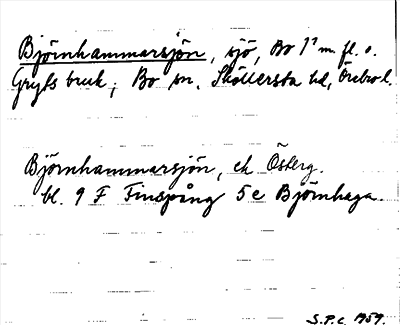 Björnhammarsjön, sjö, Bo 1² m. fl. o.
Gryts bruk, Bo sn, Sköllersta hd, Örebro l.
Björnhammarsjön, ek Östberg.
bl. 9 F Finspång 5 e Björnhaga.
S.P.C. 1959.